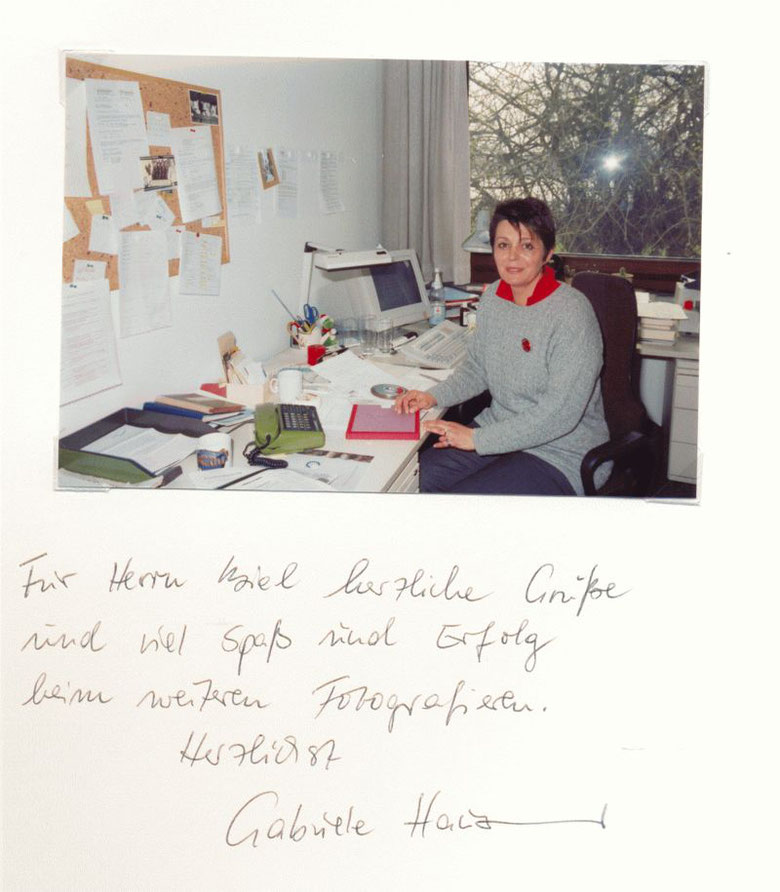 Für Herrn herzliche Grüße
und viel Spaß und Erfolg
beim weiteren Fotografieren.
Herzlichst
Gabriele